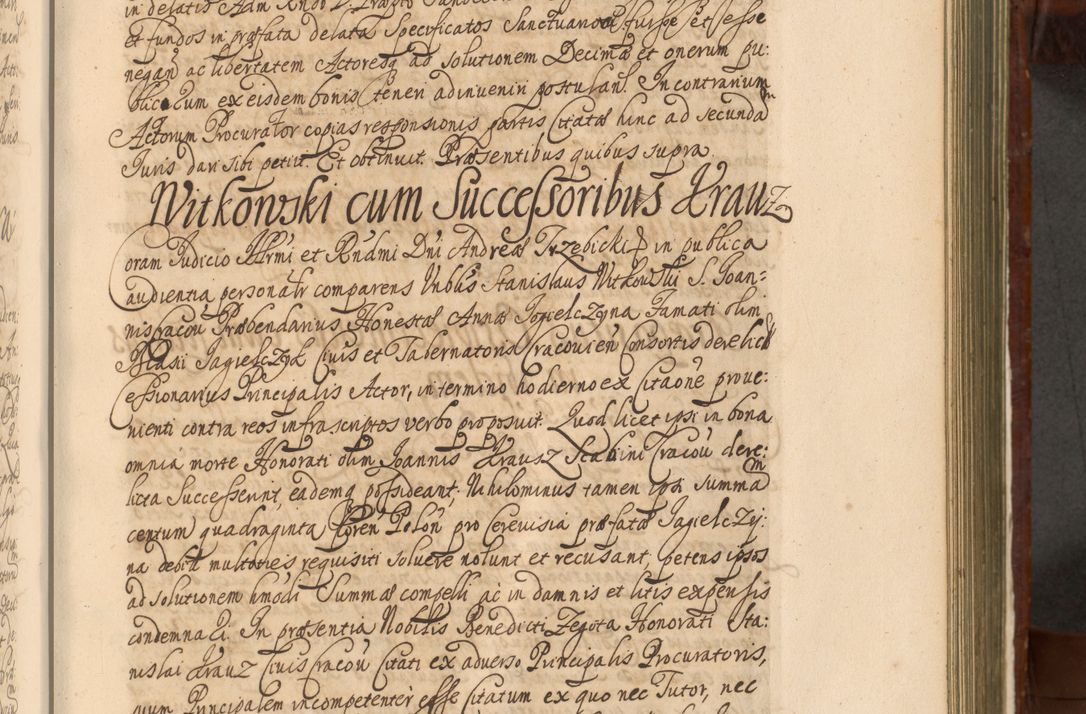 in delatio Adm Rndo D. Præpto
et fundos in præfata delata Specificatos Sanctuariose fuisse et esse
negan ac libertatem Actoresq ad solutionem Decimæ et onerum pu:
blicorum ex eisdem bonis teneri adinveniri postulan. In contrarium
Actorum Procurator copias responsionis partis Citatæ hinc ad secundam
Juris dari sibi petiit. Et obtinuit. Præsentibus quibus supra.
Witkowski cum Successoribus Krauz
Coram Judicio Illrmi et Rndmi Dni Andreæ Trzebicki in publica
audientia personalr comparens Vnblis Stanislaus Witkowski S. Joan=
nis Cracou Præbendarius Honestæ Annæ Jagielczyna Famati olim
Blasii Jagielczyk Civis et Tabernatoris Cracouien Consortis derelictæ
Cessionarius Principalis Actor, in termino hodierno ex Citaone prove:
nienti contra reos infrascriptos verbo proposuit. Quod licet ipsi in bona
omnia morte Honorati olim Joannis Krausz Scabini Cracou dere:
licta Successerint, eademq possideant. Nihilominus tamen ipsi summam
centum quadraginta floren Polon pro Cerevisia præfatæ Jagielczy:
na debit multoties requisiti solvere nolunt et recusant, petens ipsos
ad solutionem hmodi Summæ compelli ac in damnis et litis expensis
condemnari. In præsentia Nobilis Benedicti Zegota Honorati Sta:
nislai Krauz Civis Cracou Citati ex adverso Principalis Procuratoris,
qum Principalem incompetenter esse Citatum ex quo nec Tutor, nec